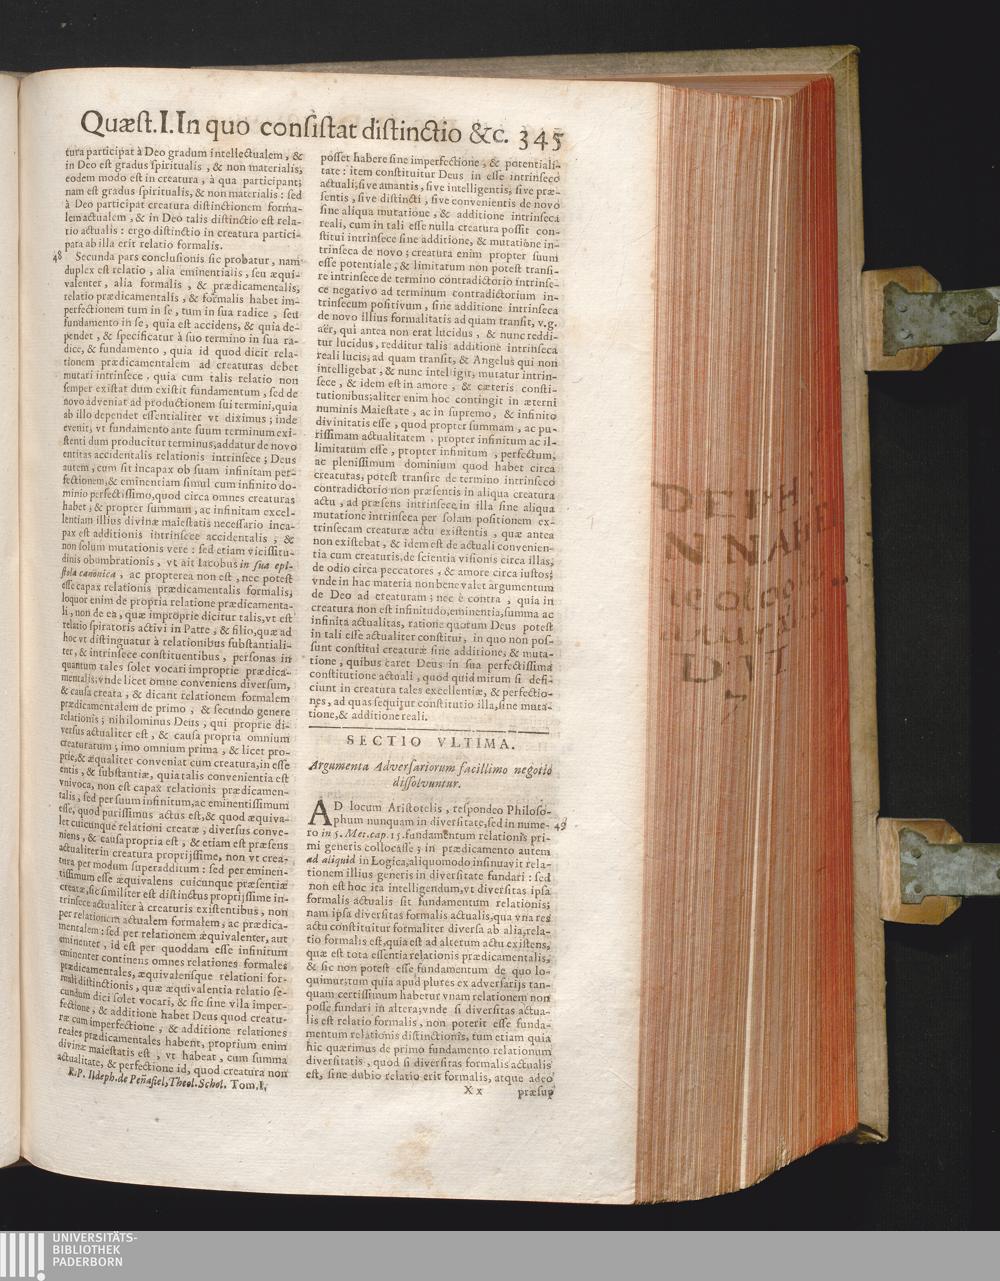 Quæst.I.In quo consistat distinctio &c. 345
tura participat à Deo gradum intellectualem, &
in Deo est gradus spiritualis, & non materialis;
eodem modo est in creatura, à qua participant;
nam est gradus spiritualis, & non materialis: sed
à Deo participat creatura distinctionem forma-
lem actualem, & in Deo talis distinctio est rela-
tio actualis: ergo distinctio in creatura partici-
pata ab illa erit relatio formalis.
48 Secunda pars conclusionis sic probatur, nam
duplex est relatio, alia eminentialis, seu æqui-
valenter, alia formalis, & prædicamentalis;
relatio prædicamentalis, & formalis habet im-
perfectionem tum in se, tum in sua radice, seu
fundamento in se, quia est accidens, & quia de-
pendet, & specificatur à suo termino in sua ra-
dice, & fundamento, quia id quod dicit rela-
tionem prædicamentalem ad creaturas debet
mutari intrinsece, quia cum talis relatio non
semper existat dum existit fundamentum, sed de
novo adveniat ad productionem sui termini, quia
ab illo dependet essentialiter vt diximus; inde
evenit, vt fundamento ante suum terminum exi-
stenti dum producitur terminus, addatur de novo
entitas accidentalis relationis intrinsece; Deus
autem, cum sit incapax ob suam infinitam per-
fectionem, & eminentiam simul cum infinito do-
minio perfectissimo, quod circa omnes creaturas
habet; & propter summam, ac infinitam excel-
lentiam illius divinæ maiestatis necessario inca-
pax est additionis intrinsece accidentalis, &
non solum mutationis vere: sed etiam vicissitu-
dinis obumbrationis, vt ait Iacobus in sua epi-
stola canonica, ac propterea non est, nec potest
esse capax relationis prædicamentalis formalis;
loquor enim de propria relatione prædicamenta-
li, non de ea, quæ improprie dicitur talis, vt est
relatio spiratoris activi in Patre, & filio, quæ ad
hoc vt distinguatur à relationibus substantiali-
ter, & intrinsece constituentibus, personas in
quantum tales solet vocari improprie prædica-
mentalis; vnde licet omne conveniens diversum,
& causa creata, & dicant relationem formalem
prædicamentalem de primo, & secundo genere
relationis; nihilominus Deus, qui proprie di-
versus actualiter est, & causa propria omnium
creaturarum; imo omnium prima, & licet pro-
prie, & æqualiter conveniat cum creatura, in esse
entis, & substantiæ, quia talis convenientia est
vnivoca, non est capax relationis prædicamen-
talis, sed per suum infinitum, ac eminentissimum
esse, quod purissimus actus est, & quod æquiva-
let cuicunque relationi creatæ, diversus conve-
niens, & causa propria est, & etiam est præsens
actualiter in creatura proprijssime, non vt crea-
tura per modum superadditum: sed per eminen-
tissimum esse æquivalens cuicunque præsentiæ
creatæ, sic similiter est distinctus proprijssime in-
trinsece actualiter à creaturis existentibus, non
per relationem actualem formalem, ac prædica-
mentalem: sed per relationem æquivalenter, aut
eminenter, id est per quoddam esse infinitum
eminenter continens omnes relationes formales
prædicamentales, æquivalensque relationi for-
mali distinctionis, quæ æquivalentia relatio se-
cundum dici solet vocari, & sic sine vlla imper-
fectione, & additione habet Deus quod creatu-
ræ cum imperfectione, & additione relationes
reales prædicamentales habent, proprium enim
divinæ maiestatis est, vt habeat, cum summa
actualitate, & perfectione id, quod creatura non
R.P. Ildeph.de Peñafiel, Theol.Schol. Tom.I.
posset habere sine imperfectione, & potentiali-
tate: item constituitur Deus in esse intrinseco
actuali; sive amantis, sive intelligentis, sive præ-
sentis, sive distincti, sive convenientis de novo
sine aliqua mutatione, & additione intrinseca
reali, cum in tali esse nulla creatura possit con-
stitui intrinsece sine additione, & mutatione in-
trinseca de novo; creatura enim propter suum
esse potentiale, & limitatum non potest transi-
re intrinsece de termino contradictorio intrinse-
ce negativo ad terminum contradictorium in-
trinsecum positivum, sine additione intrinseca
de novo illius formalitatis ad quam transit, v.g.
aër, qui antea non erat lucidus, & nunc reddi-
tur lucidus, redditur talis additione intrinseca
reali lucis, ad quam transit, & Angelus qui non
intelligebat, & nunc intelligit, mutatur intrin-
sece, & idem est in amore, & cæteris consti-
tutionibus; aliter enim hoc contingit in æterni
numinis Maiestate, ac in supremo, & infinito
divinitatis esse, quod propter summam, ac pu-
rissimam actualitatem, propter infinitum ac il-
limitatum esse, propter infinitum, perfectum,
ac plenissimum dominium quod habet circa
creaturas, potest transire de termino intrinseco
contradictorio non præsentis in aliqua creatura
actu, ad præsens intrinsece, in illa sine aliqua
mutatione intrinseca per solam positionem ex-
trinsecam creaturæ actu existentis, quæ antea
non existebat, & idem est de actuali convenien-
tia cum creaturis, de scientia visionis circa illas,
de odio circa peccatores, & amore circa iustos;
vnde in hac materia non bene valet argumentum
de Deo ad creaturam; nec è contra, quia in
creatura non est infinitudo, eminentia, summa ac
infinita actualitas, ratione quorum Deus potest
in tali esse actualiter constitui, in quo non pos-
sunt constitui creaturæ sine additione, & muta-
tione, quibus caret Deus in sua perfectissima
constitutione actuali, quod quid mirum si defi-
ciunt in creatura tales excellentiæ, & perfectio-
nes, ad quas sequitur constitutio illa, sine muta-
tione, & additione reali.
SECTIO VLTIMA.
Argumenta Adversariorum facillimo negotio
dissolvuntur.
AD locum Aristotelis, respondeo Philoso-
phum nunquam in diversitate, sed in nume- 49
ro in 5. Met.cap. 15. fundamentum relationis pri-
mi generis collocasse; in prædicamento autem
ad aliquid in Logica, aliquomodo insinuavit rela-
tionem illius generis in diversitate fundari: sed
non est hoc ita intelligendum, vt diversitas ipsa
formalis actualis sit fundamentum relationis;
nam ipsa diversitas formalis actualis, qua vna res
actu constituitur formaliter diversa ab alia, rela-
tio formalis est, quia est ad alterum actu existens,
quæ est tota essentia relationis prædicamentalis,
& sic non potest esse fundamentum de quo lo-
quimur; tum quia apud plures ex adversarijs tan-
quam certissimum habetur vnam relationem non
posse fundari in altera; vnde si diversitas actua-
lis est relatio formalis, non poterit esse funda-
mentum relationis distinctionis, tum etiam quia
hic quærimus de primo fundamento relationum
diversitatis, quod si diversitas formalis actualis
est, sine dubio relatio erit formalis, atque adeo
Xx præsup
DEPH
NNA
DVI
UNIVERSITÄTS-
BIBLIOTHEK
PADERBORN